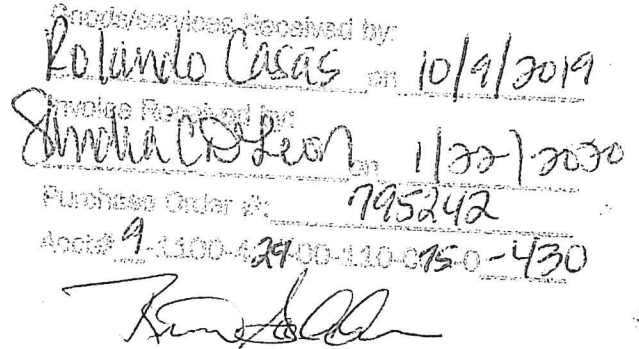 Goods/services Received by:
Rolando Casas on 10/9/2019
Invoice Received by:
Sandra C DeLeon on 1/22/2020
Purchase Order #: 795242
Acct# 9-1100-429-00-110-0750-430